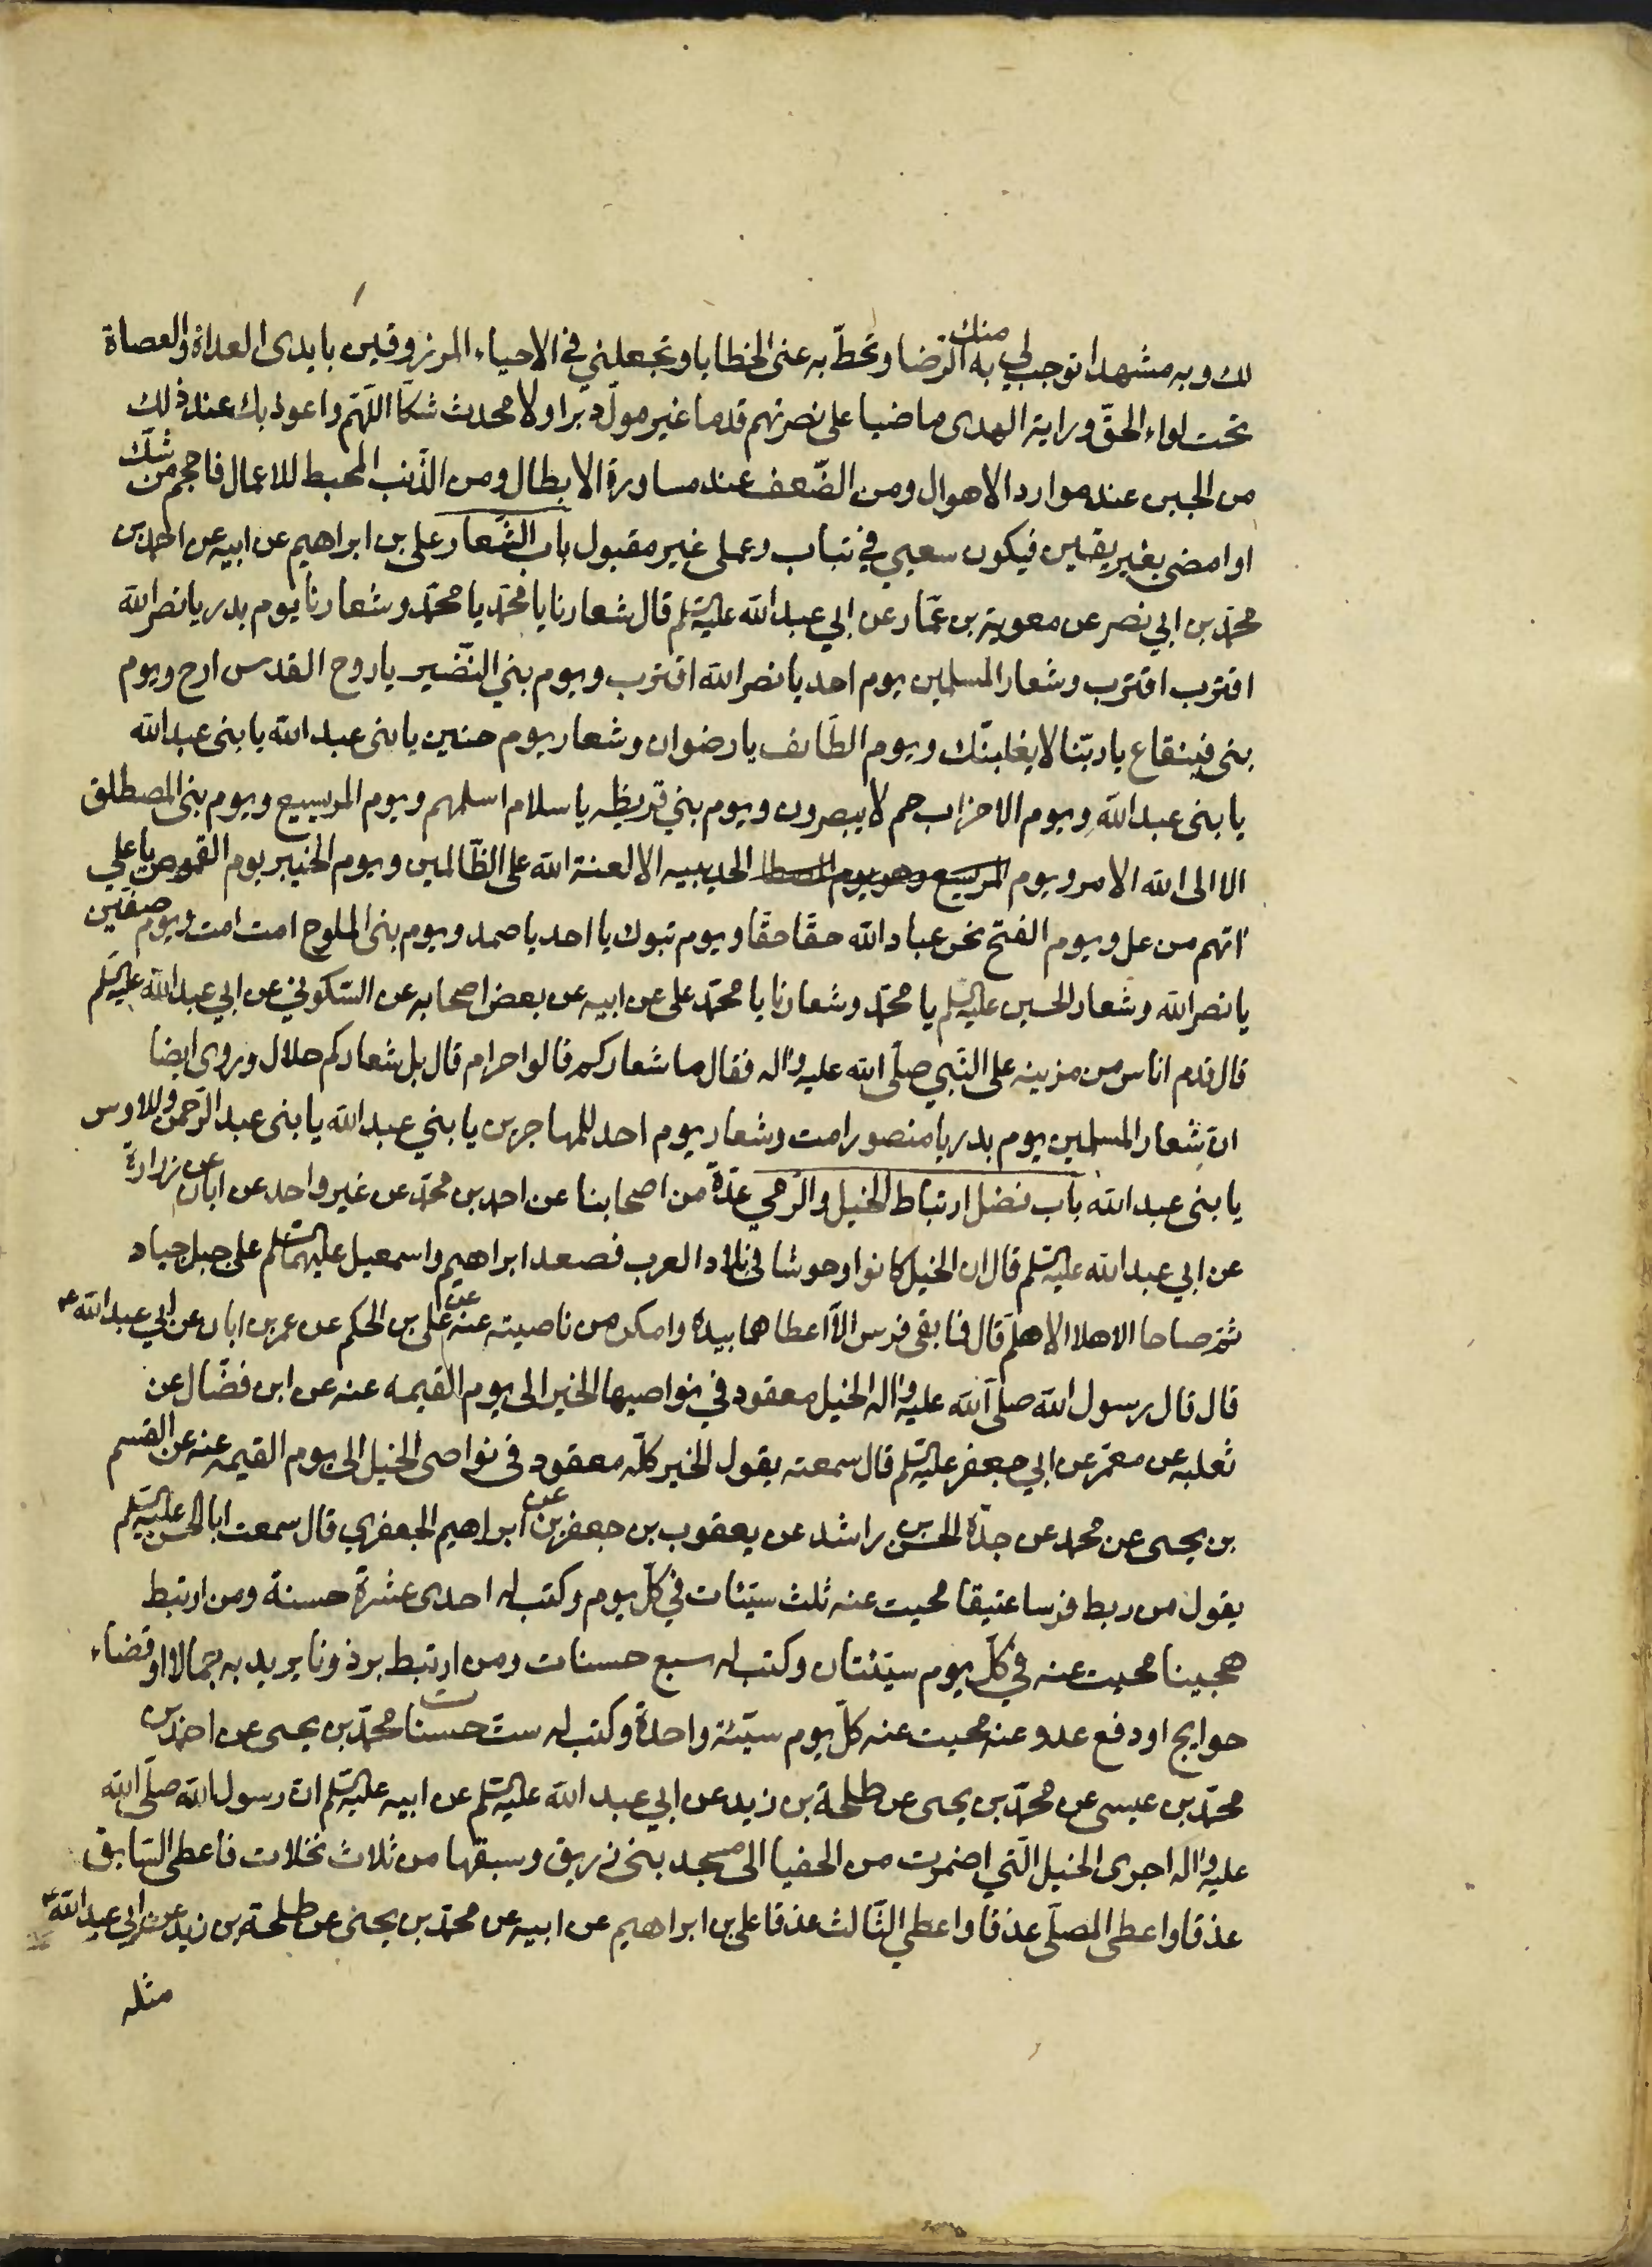 لك وبه مشهدا توجب لي به منك الرضا وتحط به عني الخطايا وتجعلني في الاحياء المرزوقين بايدى العداة والعصاة
تحت لواء الحقّ وراية الهدى ماضيا على نصرتهم قدما غير مولّ دبرا ولا محدث شكّا اللّهمّ واعوذ بك عند ذلك
من الجبن عند موارد الاهوال ومن الضّعف عند مساورة الابطال ومن الذّنب المحبط للاعمال فاحجم من شك
او امضى بغير يقين فيكون سعيي في تباب وعملى غير مقبول باب الشّعار على بن ابراهيم عن ابيه عن احمد بن
محمّد بن ابي نصر عن معوية بن عمّار عن ابي عبد الله عليه السّلم قال شعارنا يا محمّد يا محمّد وشعارنا يوم بدر يا نصر الله
اقترب اقترب وشعار المسلمين يوم احد يا نصر الله اقترب ويوم بني النّضير يا روح القدس ارح ويوم
بنى قينقاع يا ربّنا لا يغلبنّك ويوم الطّائف يا رضوان وشعار يوم حنين يا بنى عبد الله يا بنى عبد الله
يا بنى عبد الله ويوم الاحزاب حم لا يبصرون ويوم بني قريظه يا سلام اسلمهم ويوم المريسيع ويوم بنى المصطلق
الا الى الله الامر ويوم المريسيع وهو يوم المصطا الحديبيه الا لعنة الله على الظّالمين ويوم الخيبر يوم القموص يا على
اتهم من عل ويوم الفتح نحن عباد الله حقّا حقّا ويوم تبوك يا احد يا صمد ويوم بنى الملوح امت امت ويوم صفّين
يا نصر الله وشعار الحسين عليه السّلم يا محمّد وشعارنا يا محمّد على عن ابيه عن بعض اصحابه عن السّكوني عن ابي عبد الله عليه السّلم
قال قدم اناس من مزينه على النّبي صلّى الله عليه واله فقال ما شعاركم قالوا حرام قال بل شعاركم حلال وروى ايضا
انّ شعار المسلمين يوم بدر يا منصور امت وشعار يوم احد للمهاجرين يا بني عبد الله يا بنى عبد الرّحمن وللاوس
يا بنى عبد الله باب فضل ارتباط الخيل والرّمي عدّة من اصحابنا عن احمد بن محمّد عن غير واحد عن ابان عن زرارة
عن ابي عبد الله عليه السّلم قال ان الخيل كانوا وحوشا في بلاد العرب فصعد ابراهيم واسمعيل عليهما السّلم على جبل جياد
ثمّ صاحا الاهلا الاهلم قال فما بقى فرس الّا اعطاهما بيده وامكن من ناصيته عنه عن على بن الحكم عن عمر بن ابان عن ابي عبد الله ع
قال قال رسول الله صلّى الله عليه واله الخيل معقود في نواصيها الخير الى يوم القيمه عنه عن ابن فضّال عن
ثعلبه عن معمّر عن ابي جعفر عليه السّلم قال سمعته يقول الخير كلّه معقود في نواصى الخيل الى يوم القيمه عنه عن القسم
بن يحيى عن محمد عن جدّه الحسن بن راشد عن يعقوب بن جعفر بن عن ابراهيم الجعفري قال سمعت ابا الحسن عليه السّلم
يقول من ربط فرسا عتيقا محيت عنه ثلث سيّئات في كلّ يوم وكتب له احدى عشرة حسنة ومن ارتبط
هجينا محيت عنه في كلّ يوم سيّئتان وكتب له سبع حسنات ومن ارتبط برذونا يريد به جمالا او قضاء
حوايج او دفع عدو عنه محيت عنه كلّ يوم سيّئة واحدة وكتب له ستّ حسنات محمّد بن يحيى عن احمد بن
محمّد بن عيسى عن محمّد بن يحيى عن طلحة بن زيد عن ابي عبد الله عليه السّلم عن ابيه عليه السّلم انّ رسول الله صلّى الله
عليه واله اجرى الخيل الّتي اضمرت من الحفيا الى مسجد بنى زريق وسبقها من ثلاث نخلات فاعطى السّابق
عذقا واعطى المصلّى عذقا واعطى الثّالث عذقا على بن ابراهيم عن ابيه عن محمّد بن يحيى عن طلحة بن زيد عن ابي عبد الله ع
مثله